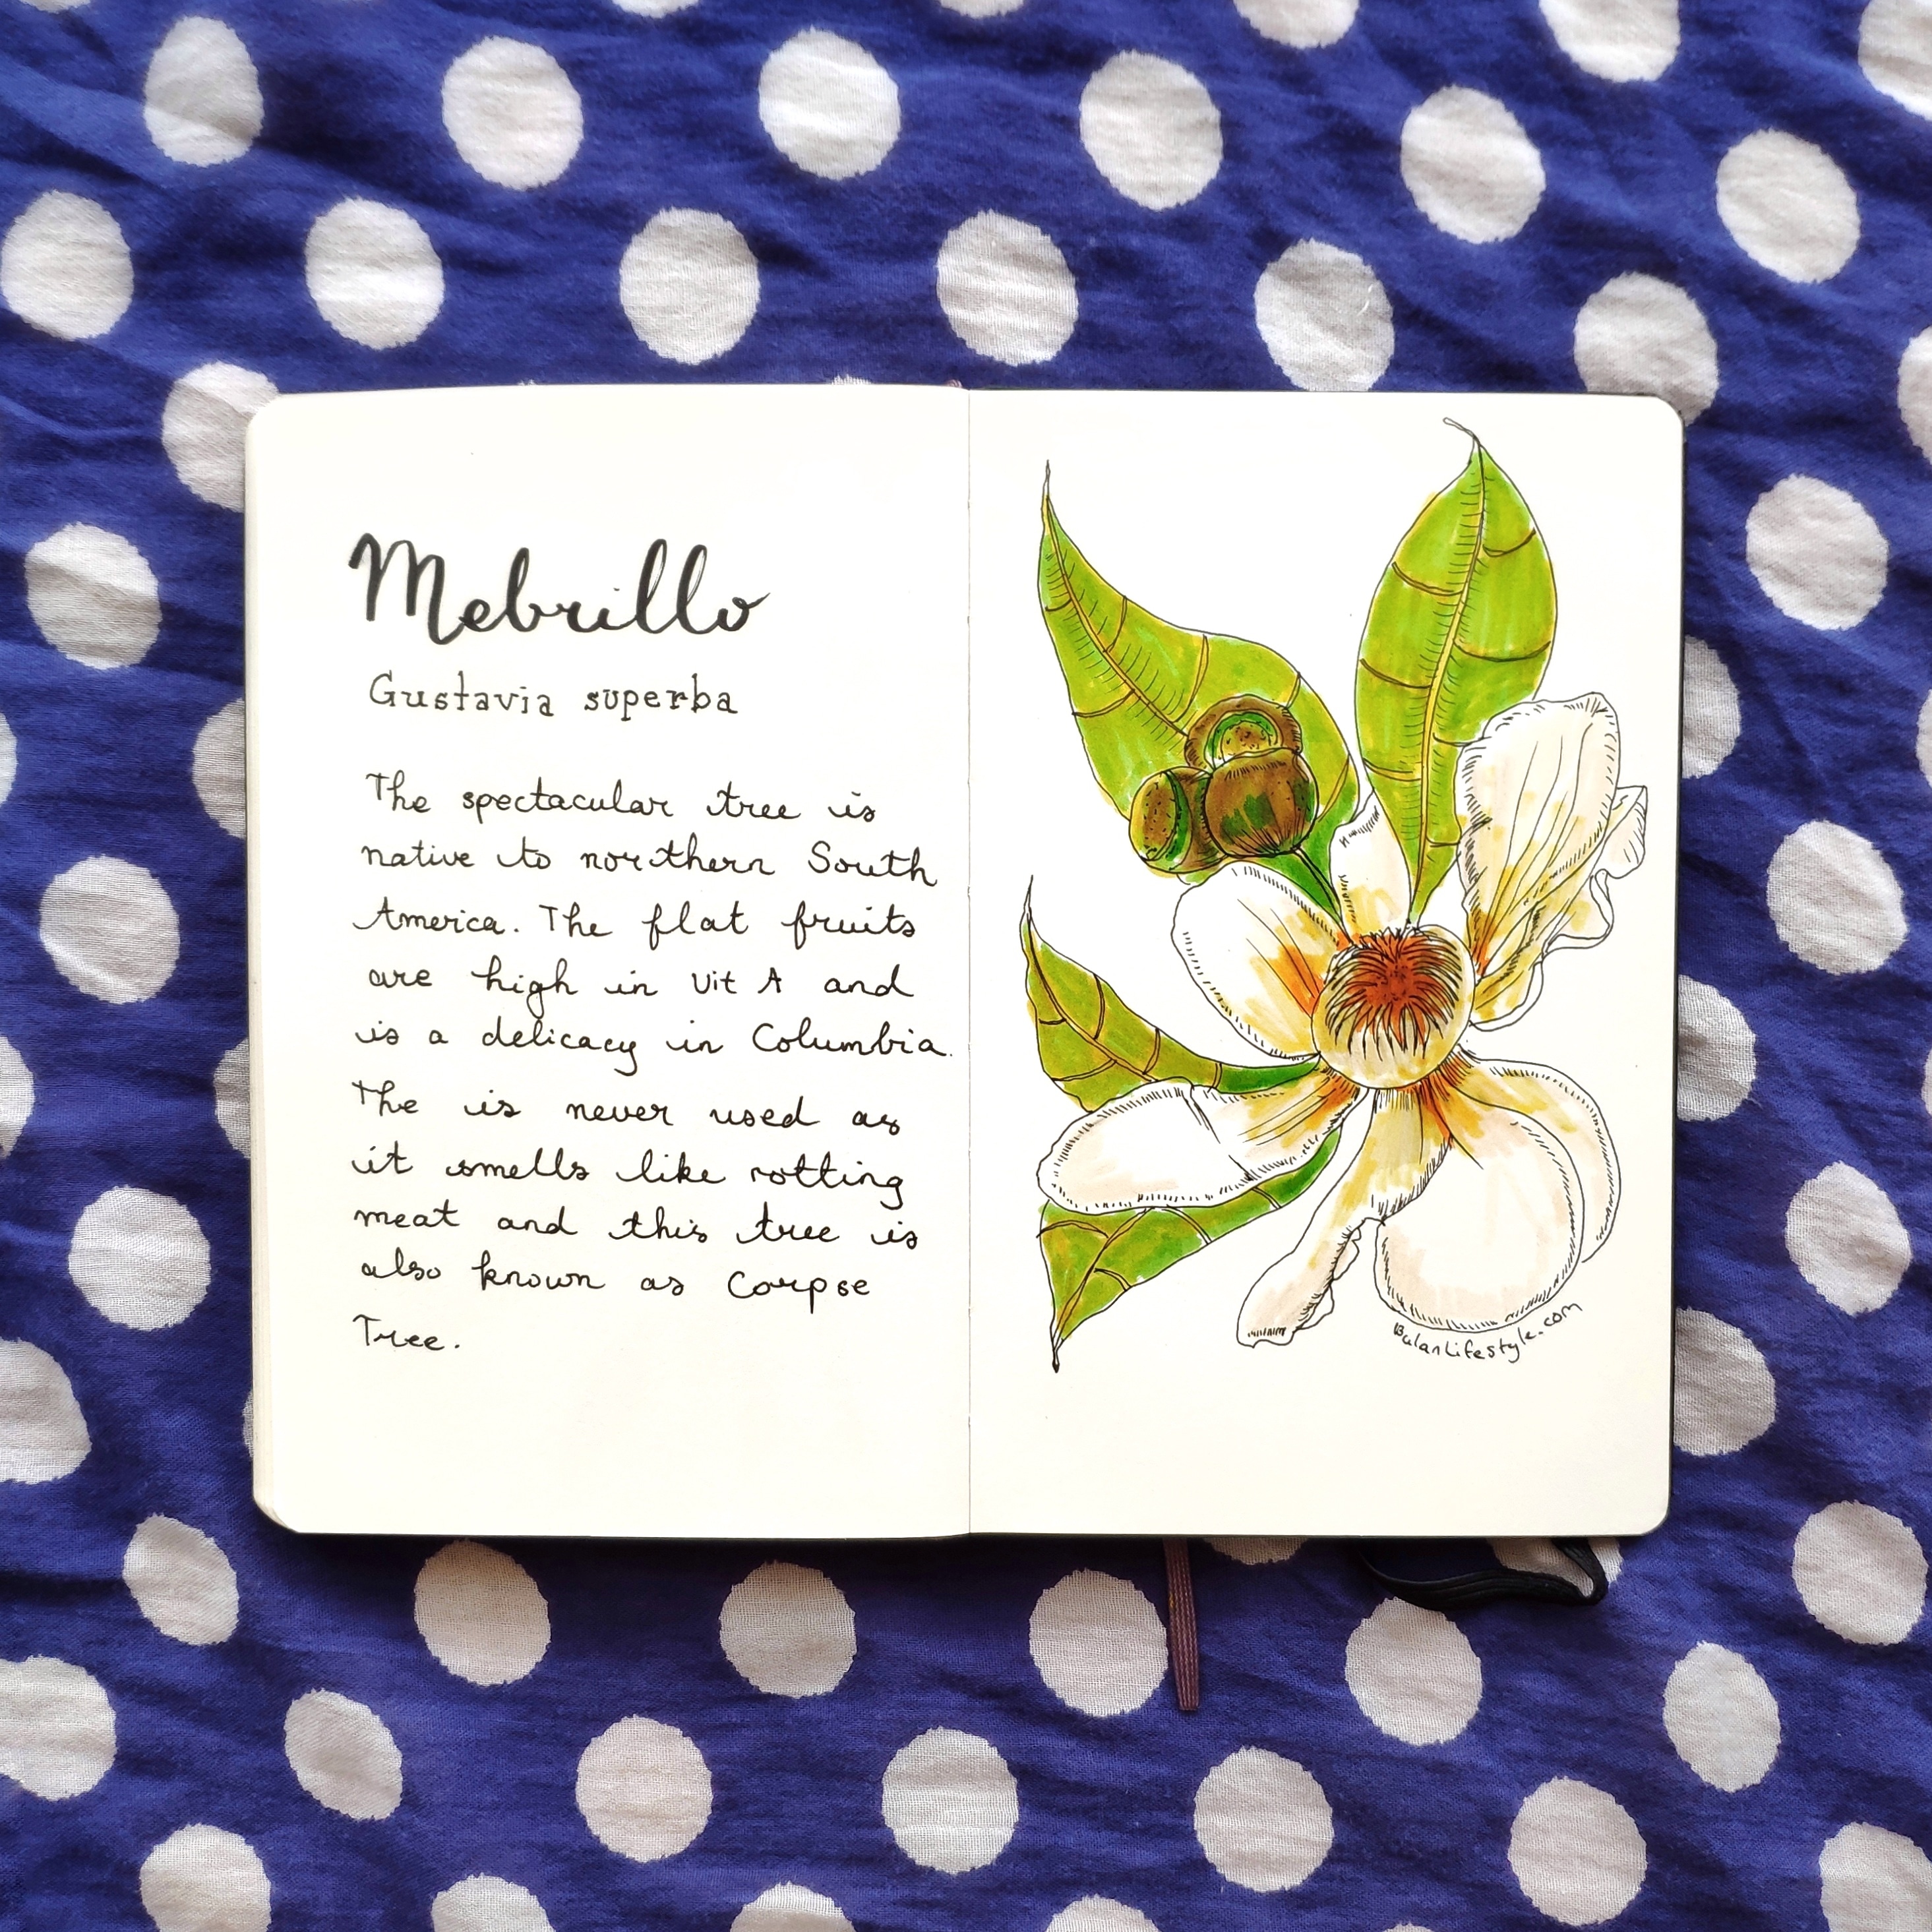 Mebrillo
Gustavia superba
The spectacular tree is
native to northern South
America. The flat fruits
are high in Vit A and
is a delicacy in Columbia.
The is never used as
it smells like rotting
meat and this tree is
also known as Corpse
Tree.
BulanLifestyle.com